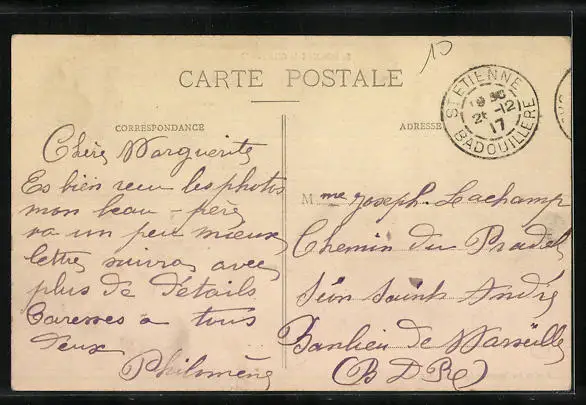 15
CARTE POSTALE
CORRESPONDANCE
ADRESSE
ST ETIENNE
21 -12
17
BADOUILLERE
Chère Marguerite
Es bien recu les photos
mon beau-père
va un peu mieux
lettre suivra avec
plus de détails
Caresses a tous
deux
Philomène
Mme Joseph Lachamp
Chemin du Pradel
Saint André
Banlieu de Marseille
(B D R)